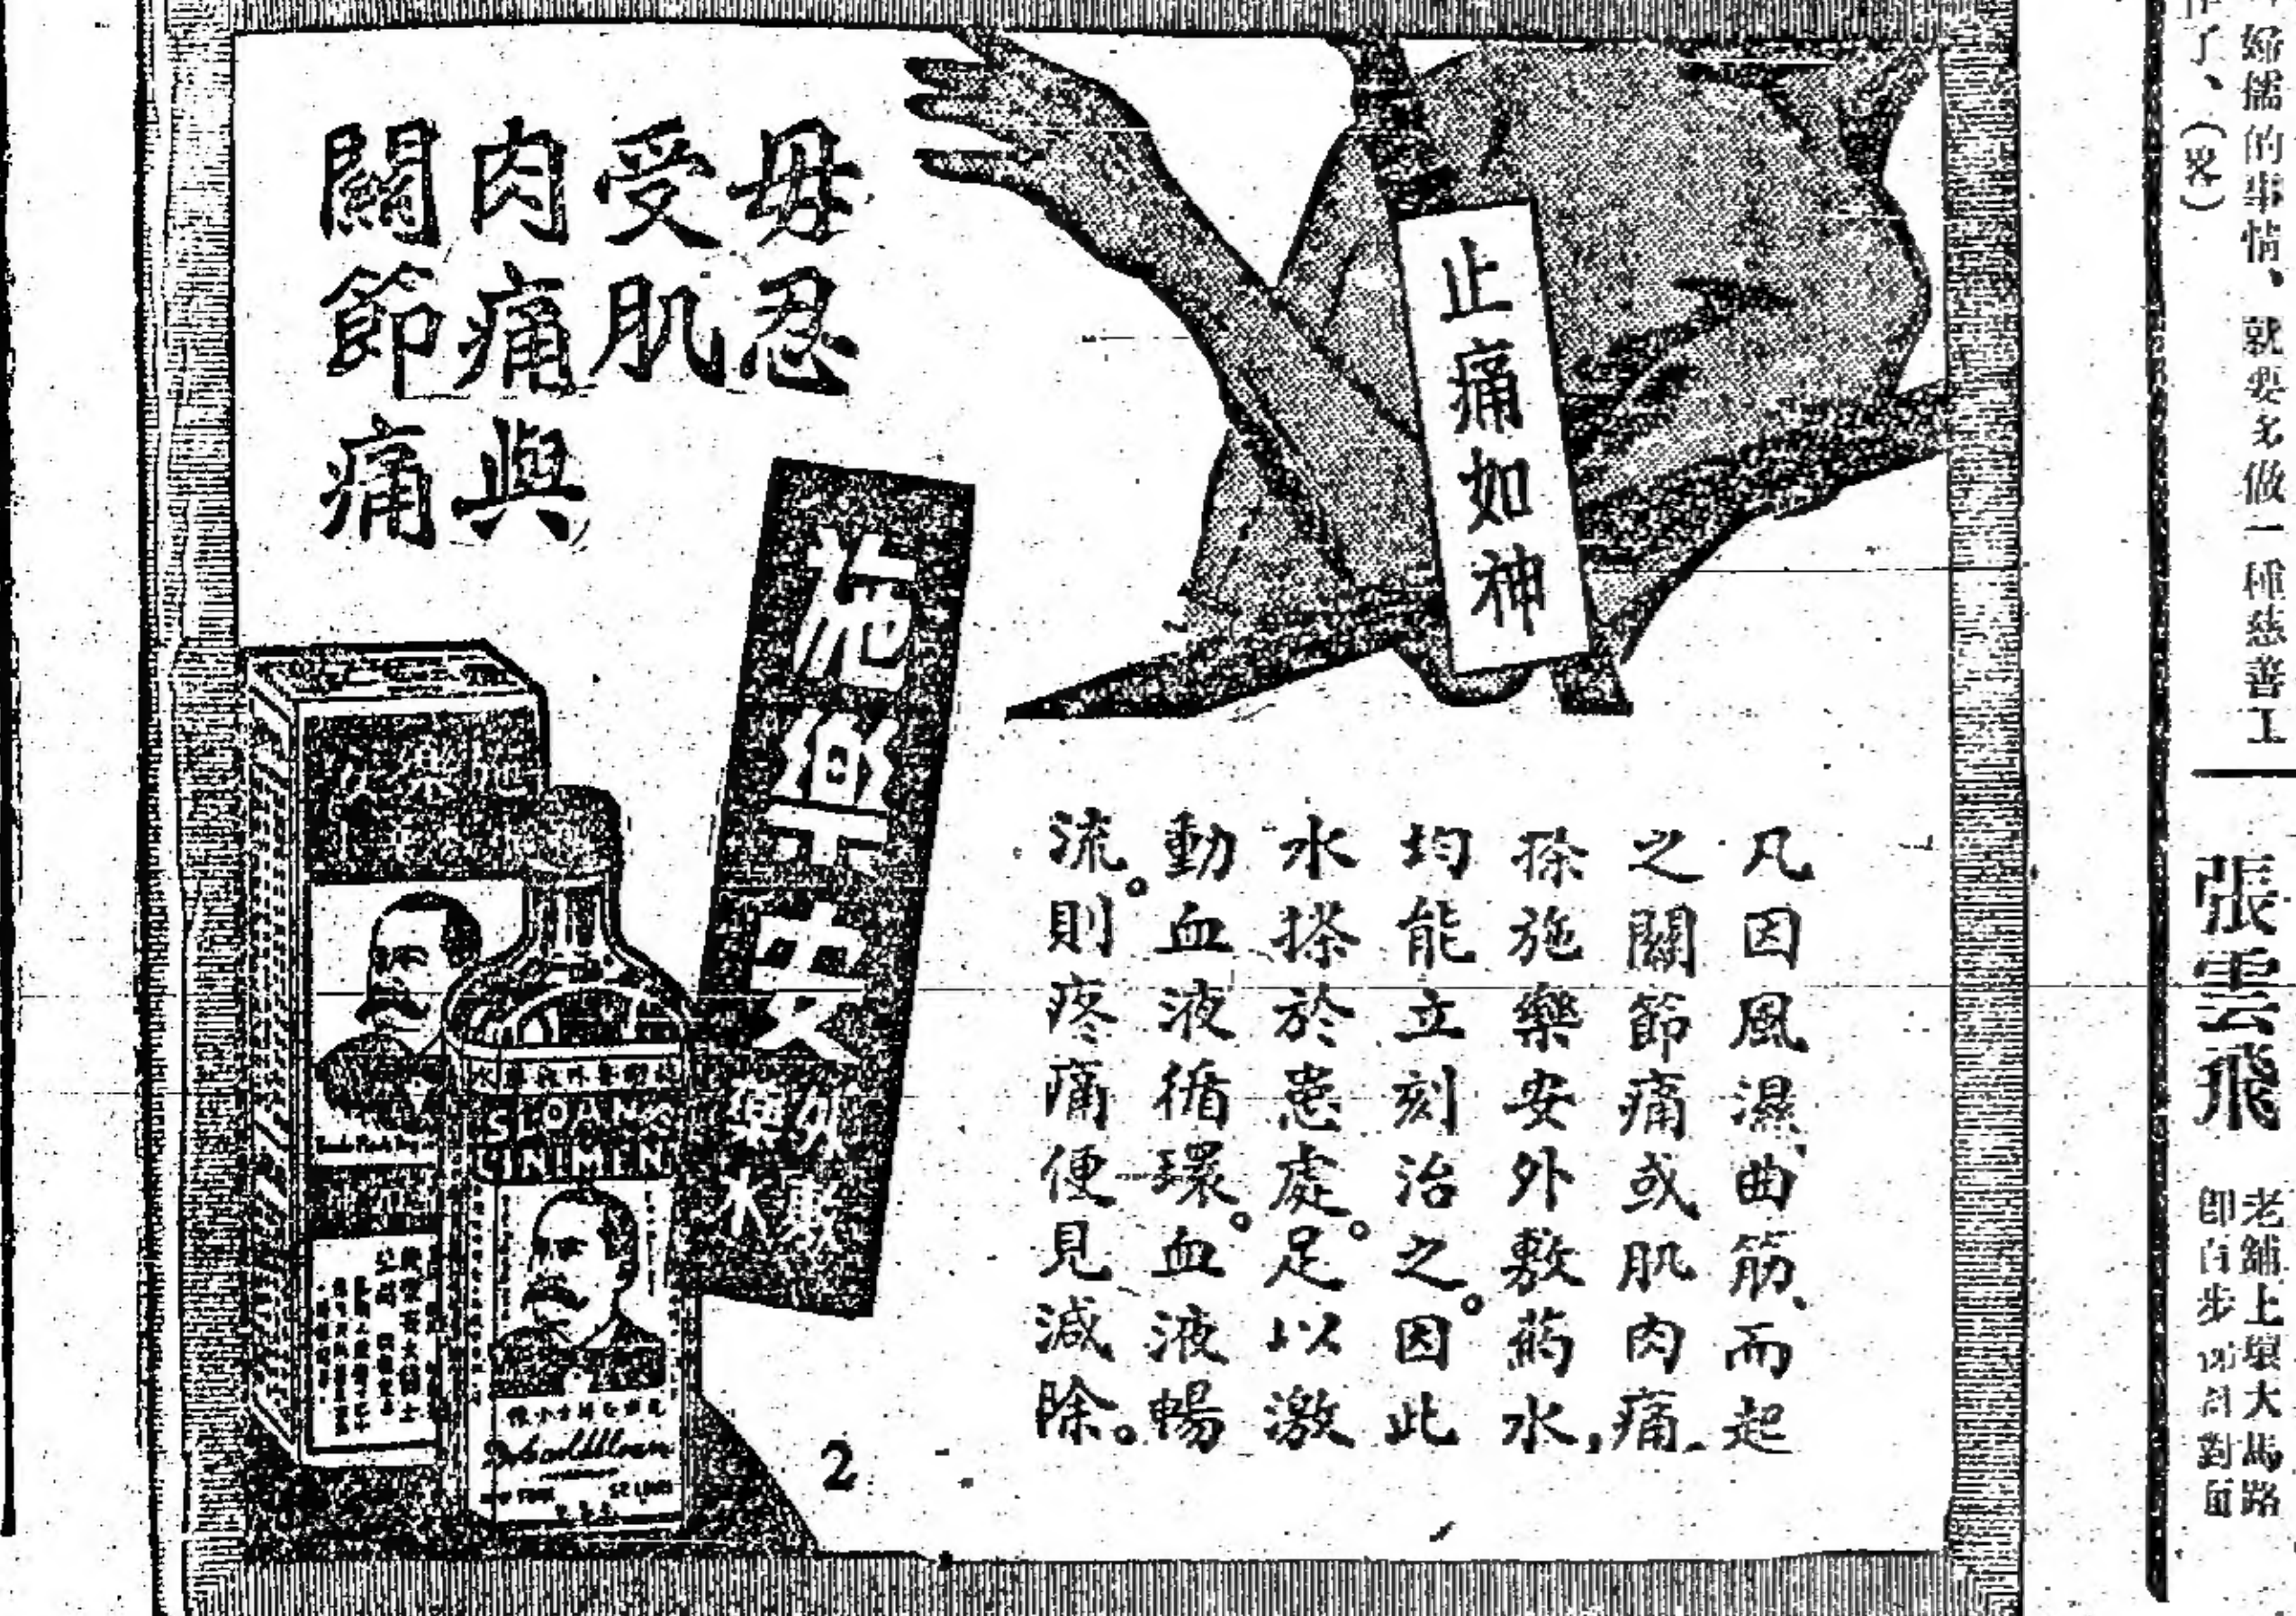 婦儒的事情、就要多做一種慈善工
作了、(畧)
張雲飛
老鋪上環大馬路
即百步
對面
止痛如神
毋忍
受肌
肉痛與
關節痛
施樂安
外敷
藥水
凡因風濕、曲筋、而起
之關節痛或肌肉痛、
搽施樂安外敷葯水，
均能立刻治之。因此
水搽於患處。足以激
動血液循環。血液暢
流。則疼痛便見減除。
SLOAN'S
LINIMEN
NEW YORK
ST LOUIS
2